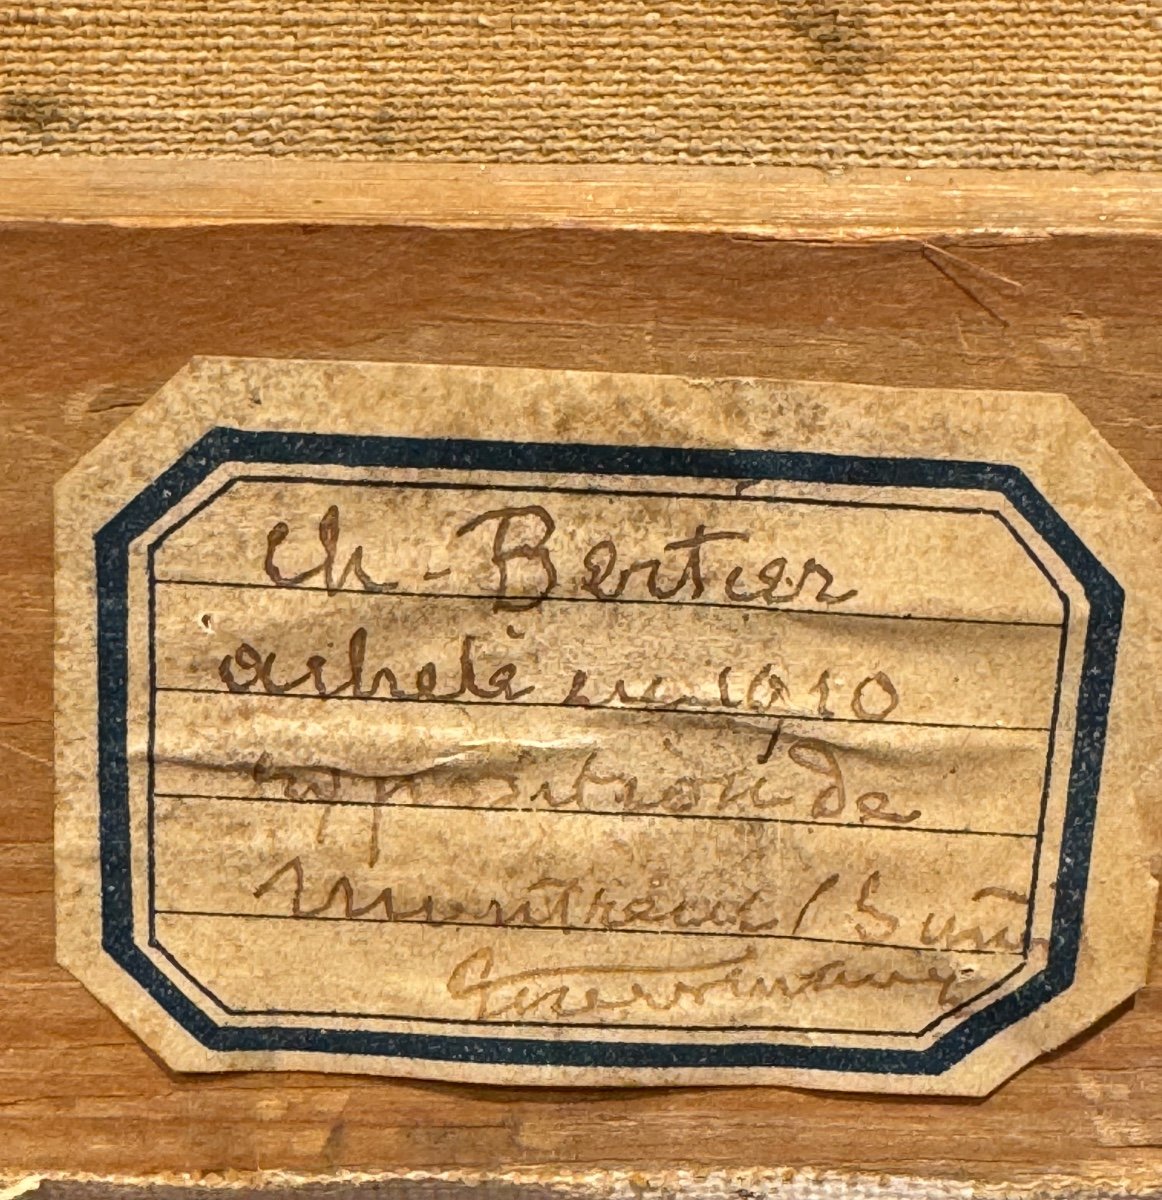 Ch - Bertier
acheté en 1910
exposition de
Montreux / Suisse